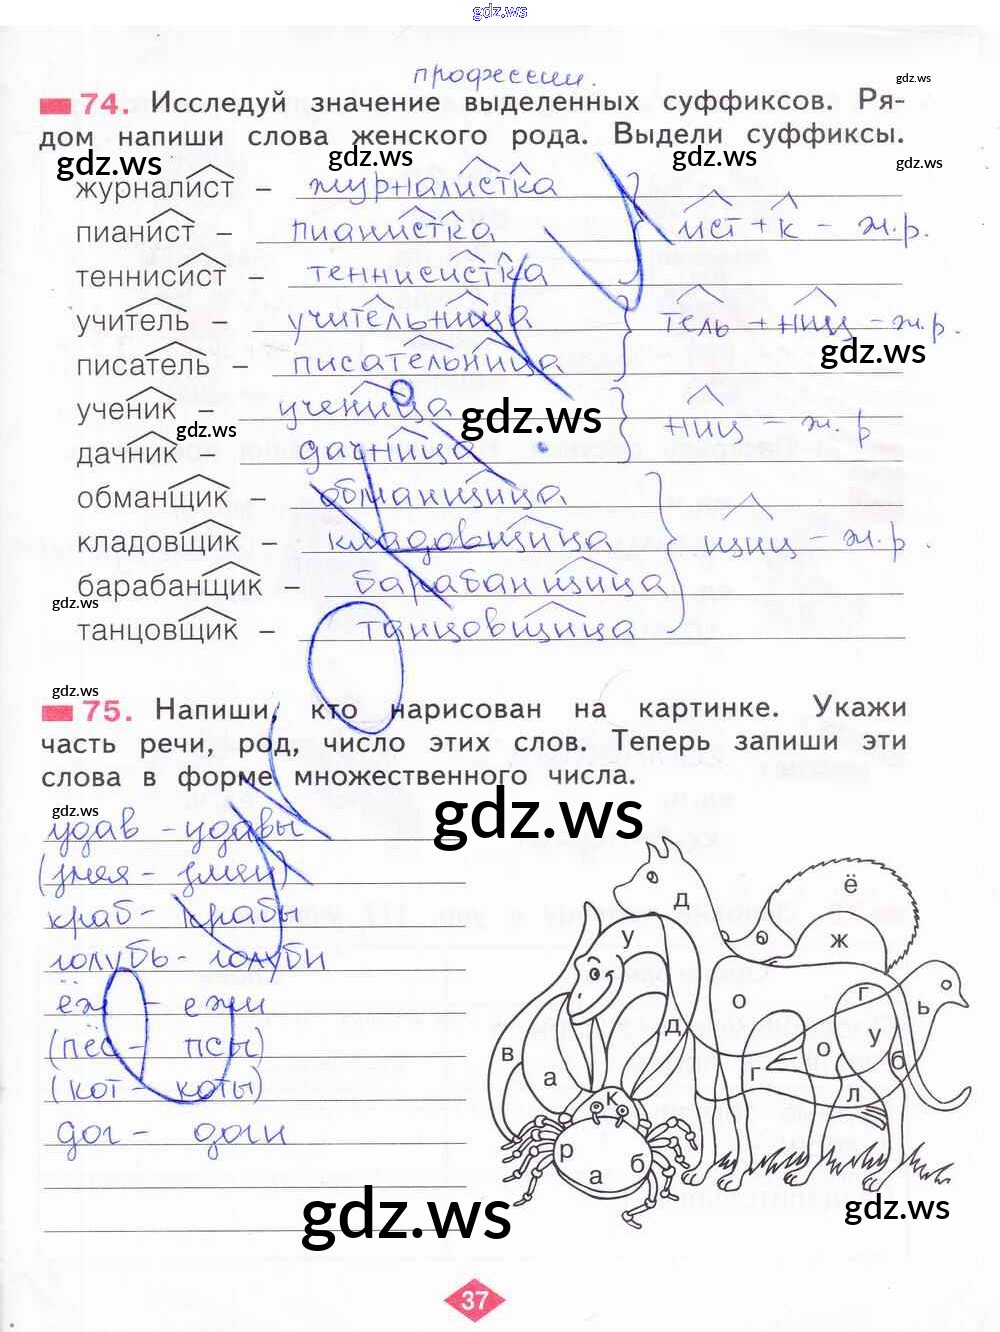 gdz.ws
профессии.
gdz.ws
74. Исследуй значение выделенных суффиксов. Ря-
дом напиши слова женского рода. Выдели суффиксы.
gdz.ws gdz.ws gdz.ws gdz.ws
журналист – журналистка
пианист – пианистка ист + к – ж.р.
теннисист – теннисистка
учитель – учительница тель + ниц – ж.р.
писатель – писательница gdz.ws
ученик – ученица gdz.ws
gdz.ws ниц – ж.р
дачник – дачница
обманщик – обманщица
кладовщик – кладовщица щиц – ж.р.
барабанщик – барабанщица
gdz.ws
танцовщик – танцовщица
gdz.ws
75. Напиши, кто нарисован на картинке. Укажи
часть речи, род, число этих слов. Теперь запиши эти
слова в форме множественного числа.
gdz.ws gdz.ws
удав – удавы
(змея – змеи)
краб – крабы
голубь – голуби
ёж – ежи
(пёс – псы)
(кот – коты)
дог – доги
д ё
у б ж
о г ь
д о у
в а г б
к л
р а б
gdz.ws gdz.ws
37